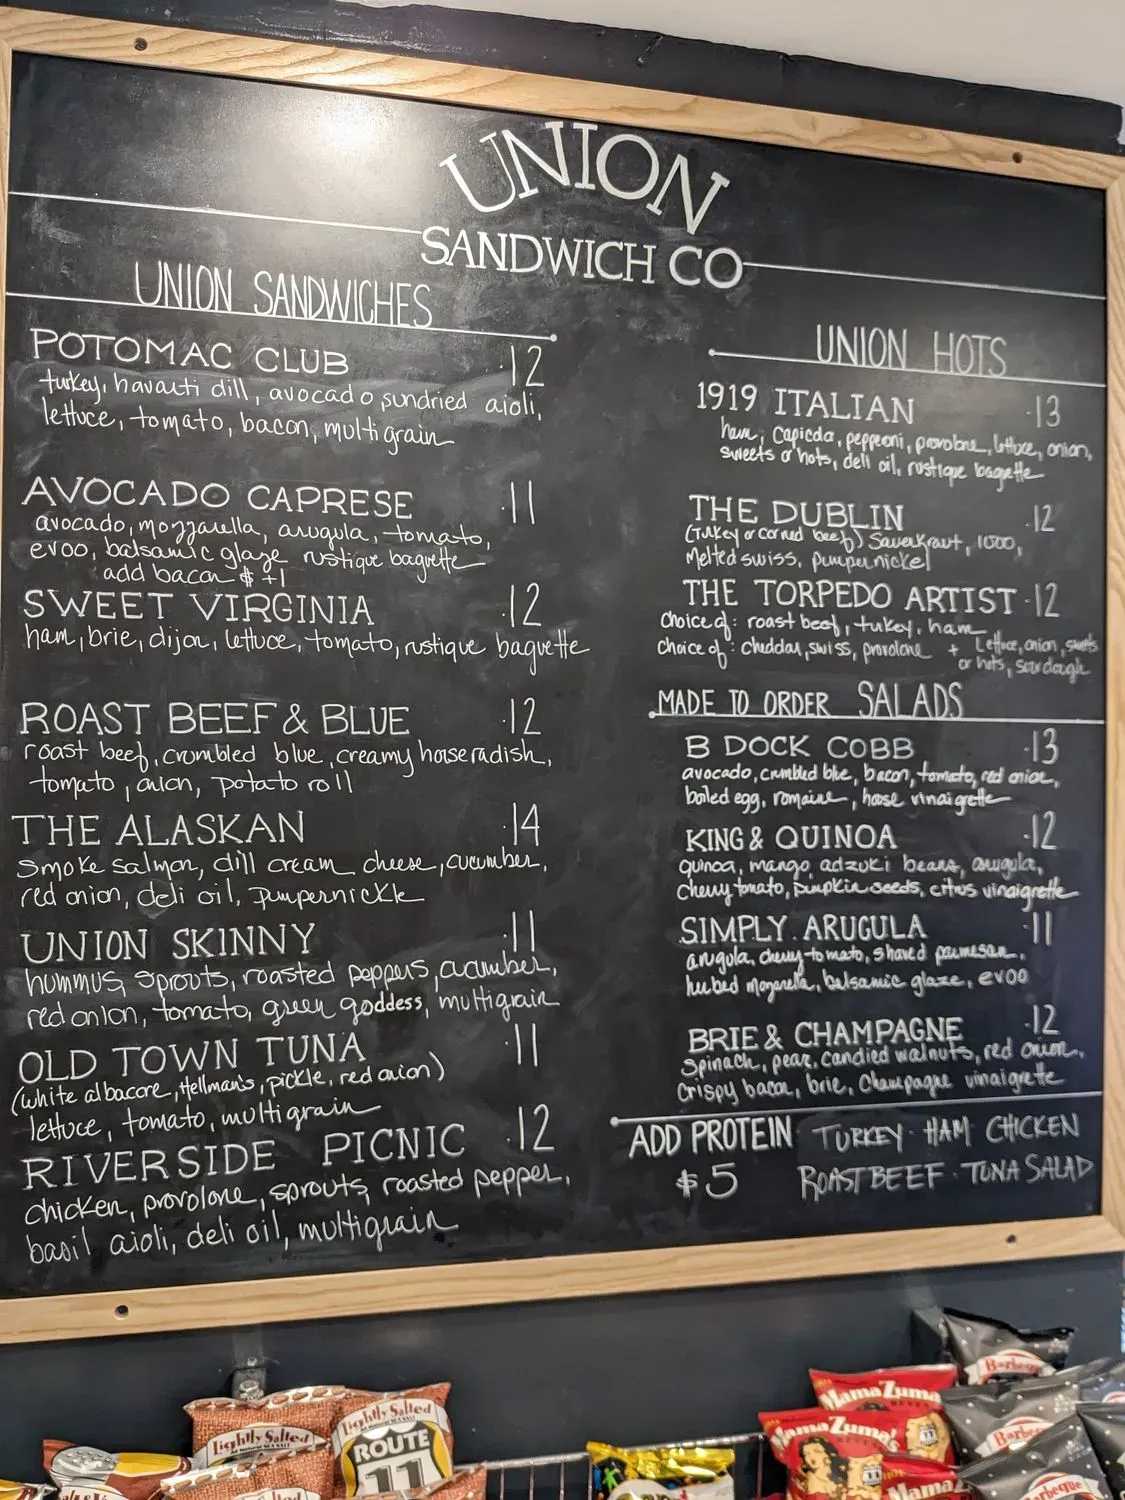 UNION
SANDWICH CO
UNION SANDWICHES
POTOMAC CLUB 12
turkey, havarti dill, avocado, sundried aioli,
lettuce, tomato, bacon, multigrain
AVOCADO CAPRESE 11
avocado, mozzarella, arugula, tomato,
evoo, balsamic glaze rustique baguette
add bacon $ +1
SWEET VIRGINIA 12
ham, brie, dijon, lettuce, tomato, rustique baguette
ROAST BEEF & BLUE 12
roast beef, crumbled blue, creamy horseradish,
tomato, onion, potato roll
THE ALASKAN 14
Smoke salmon, dill cream cheese, cucumber,
red onion, deli oil, pumpernickle
UNION SKINNY 11
hummus, sprouts, roasted peppers, cucumber,
red onion, tomato, green goddess, multigrain
OLD TOWN TUNA 11
(white albacore, Hellman's, pickle, red onion)
lettuce, tomato, multigrain
RIVERSIDE PICNIC 12
chicken, provolone, sprouts, roasted pepper,
basil aioli, deli oil, multigrain
UNION HOTS
1919 ITALIAN 13
ham, capicola, pepperoni, provolone, lettuce, onion,
sweets or hots, deli oil, rustique baguette
THE DUBLIN 12
(Turkey or corned beef) Sauerkraut, 1000,
Melted swiss, pumpernickel
THE TORPEDO ARTIST 12
choice of: roast beef, turkey, ham
choice of: cheddar, swiss, provolone + Lettuce, onion, sweets
or hots, sourdough
MADE TO ORDER SALADS
B DOCK COBB 13
avocado, crumbled blue, bacon, tomato, red onion,
boiled egg, romaine, house vinaigrette
KING & QUINOA 12
quinoa, mango, adzuki beans, arugula,
cherry tomato, pumpkin seeds, citrus vinaigrette
SIMPLY ARUGULA 11
arugula, cherry tomato, shaved parmesan,
herbed mozzarella, balsamic glaze, evoo
BRIE & CHAMPAGNE 12
spinach, pear, candied walnuts, red onion,
crispy bacon, brie, Champagne vinaigrette
ADD PROTEIN TURKEY · HAM CHICKEN
$5 ROAST BEEF · TUNA SALAD
Lightly Salted
Lightly Salted
ROUTE
11
Mama Zuma's
Mama Zuma's
Barbeque
Barbeque
Barbeque